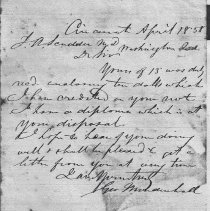 Cincinnati April 18 58
J. A. Scudder M.D. Washington Ind.
Dr Sir
Yours of 13 was duly
recd enclosing ten dolls which
I have credited on your not
I have a diploma which is at
your disposal
I hope to hear of you doing
well & shall be pleased to get a
letter from you at any time
I am Yours truly
Geo Mendenhall